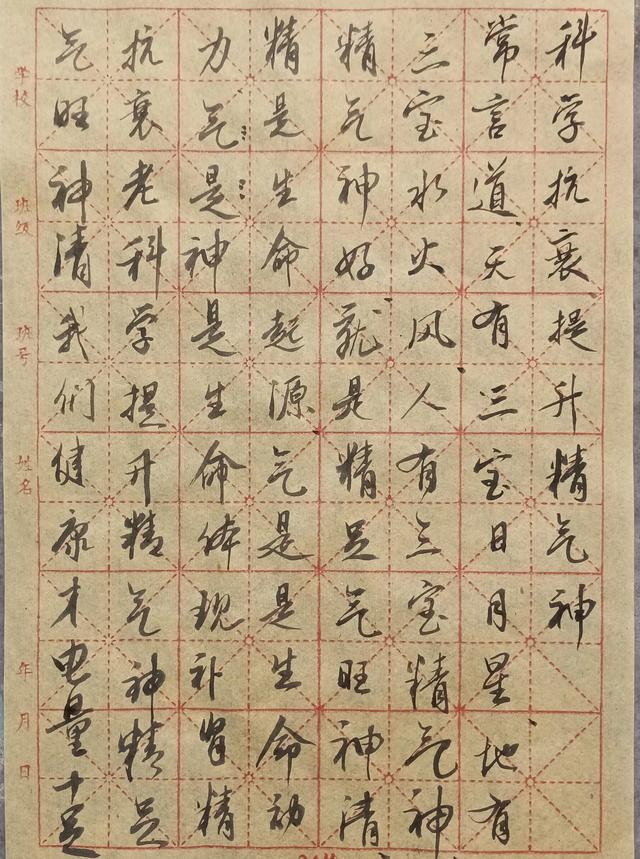 科学抗衰提升精气神
常言道天有三宝日月星地有
三宝水火风人有三宝精气神
精气神好就是精足气旺神清
精是生命起源气是是生命动
力气是神是生命体现补肾精
抗衰老科学提升精气神精足
气旺神清我们健康才电量十足
学校 班级 班号 姓名 年 月 日